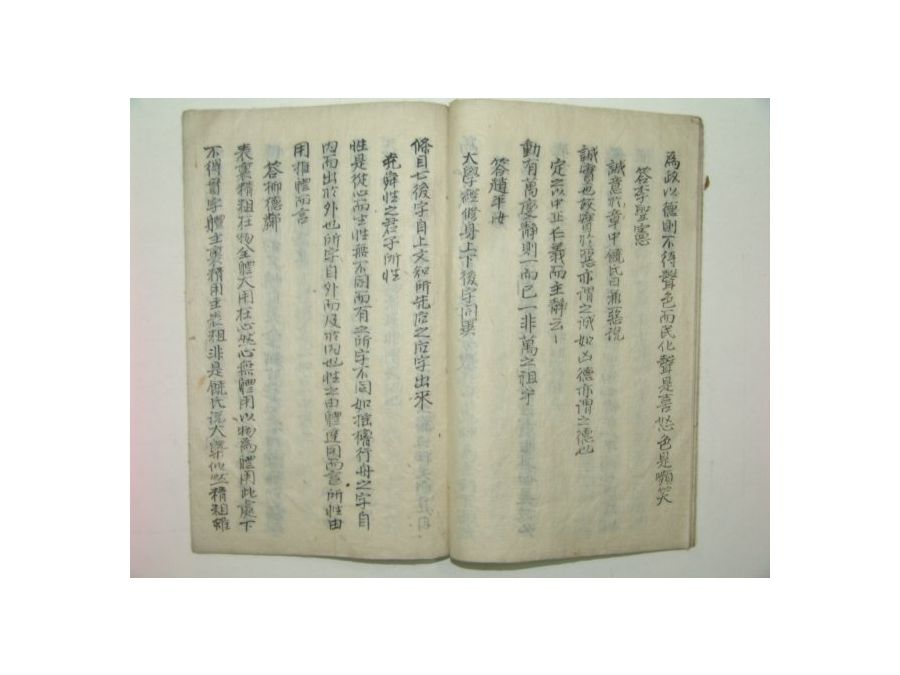 為政以德則不得聲色而民化聲是喜怒色是嚬笑
答李聖憲
誠意於章中饒氏曰兼惡說
誠實也故實於惡亦謂之誠如凶德亦謂之德也
定之以中正仁義而主靜云云
動有萬變靜則一而已一非萬之祖乎
答趙
大學經修身上下後字同異
條目七後字自上文知所先后之后字出來
堯舜性之君子所性
性是從心而生性無不同而有之所字不同如
行母之字自
內而出於外也所字自外而及於內也性之由體達因而言所性由
用推體而言
答柳德鄰
表裏精粗在物全體大用在心然心無體用以物為體用此處下
不得貫字體主裏精用主表粗非是饒氏說大學似然精粗雖